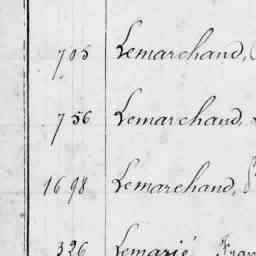 705 Lemarchand,
756 Lemarchand,
1698 Lemarchand,
326 Lemarié, Fran